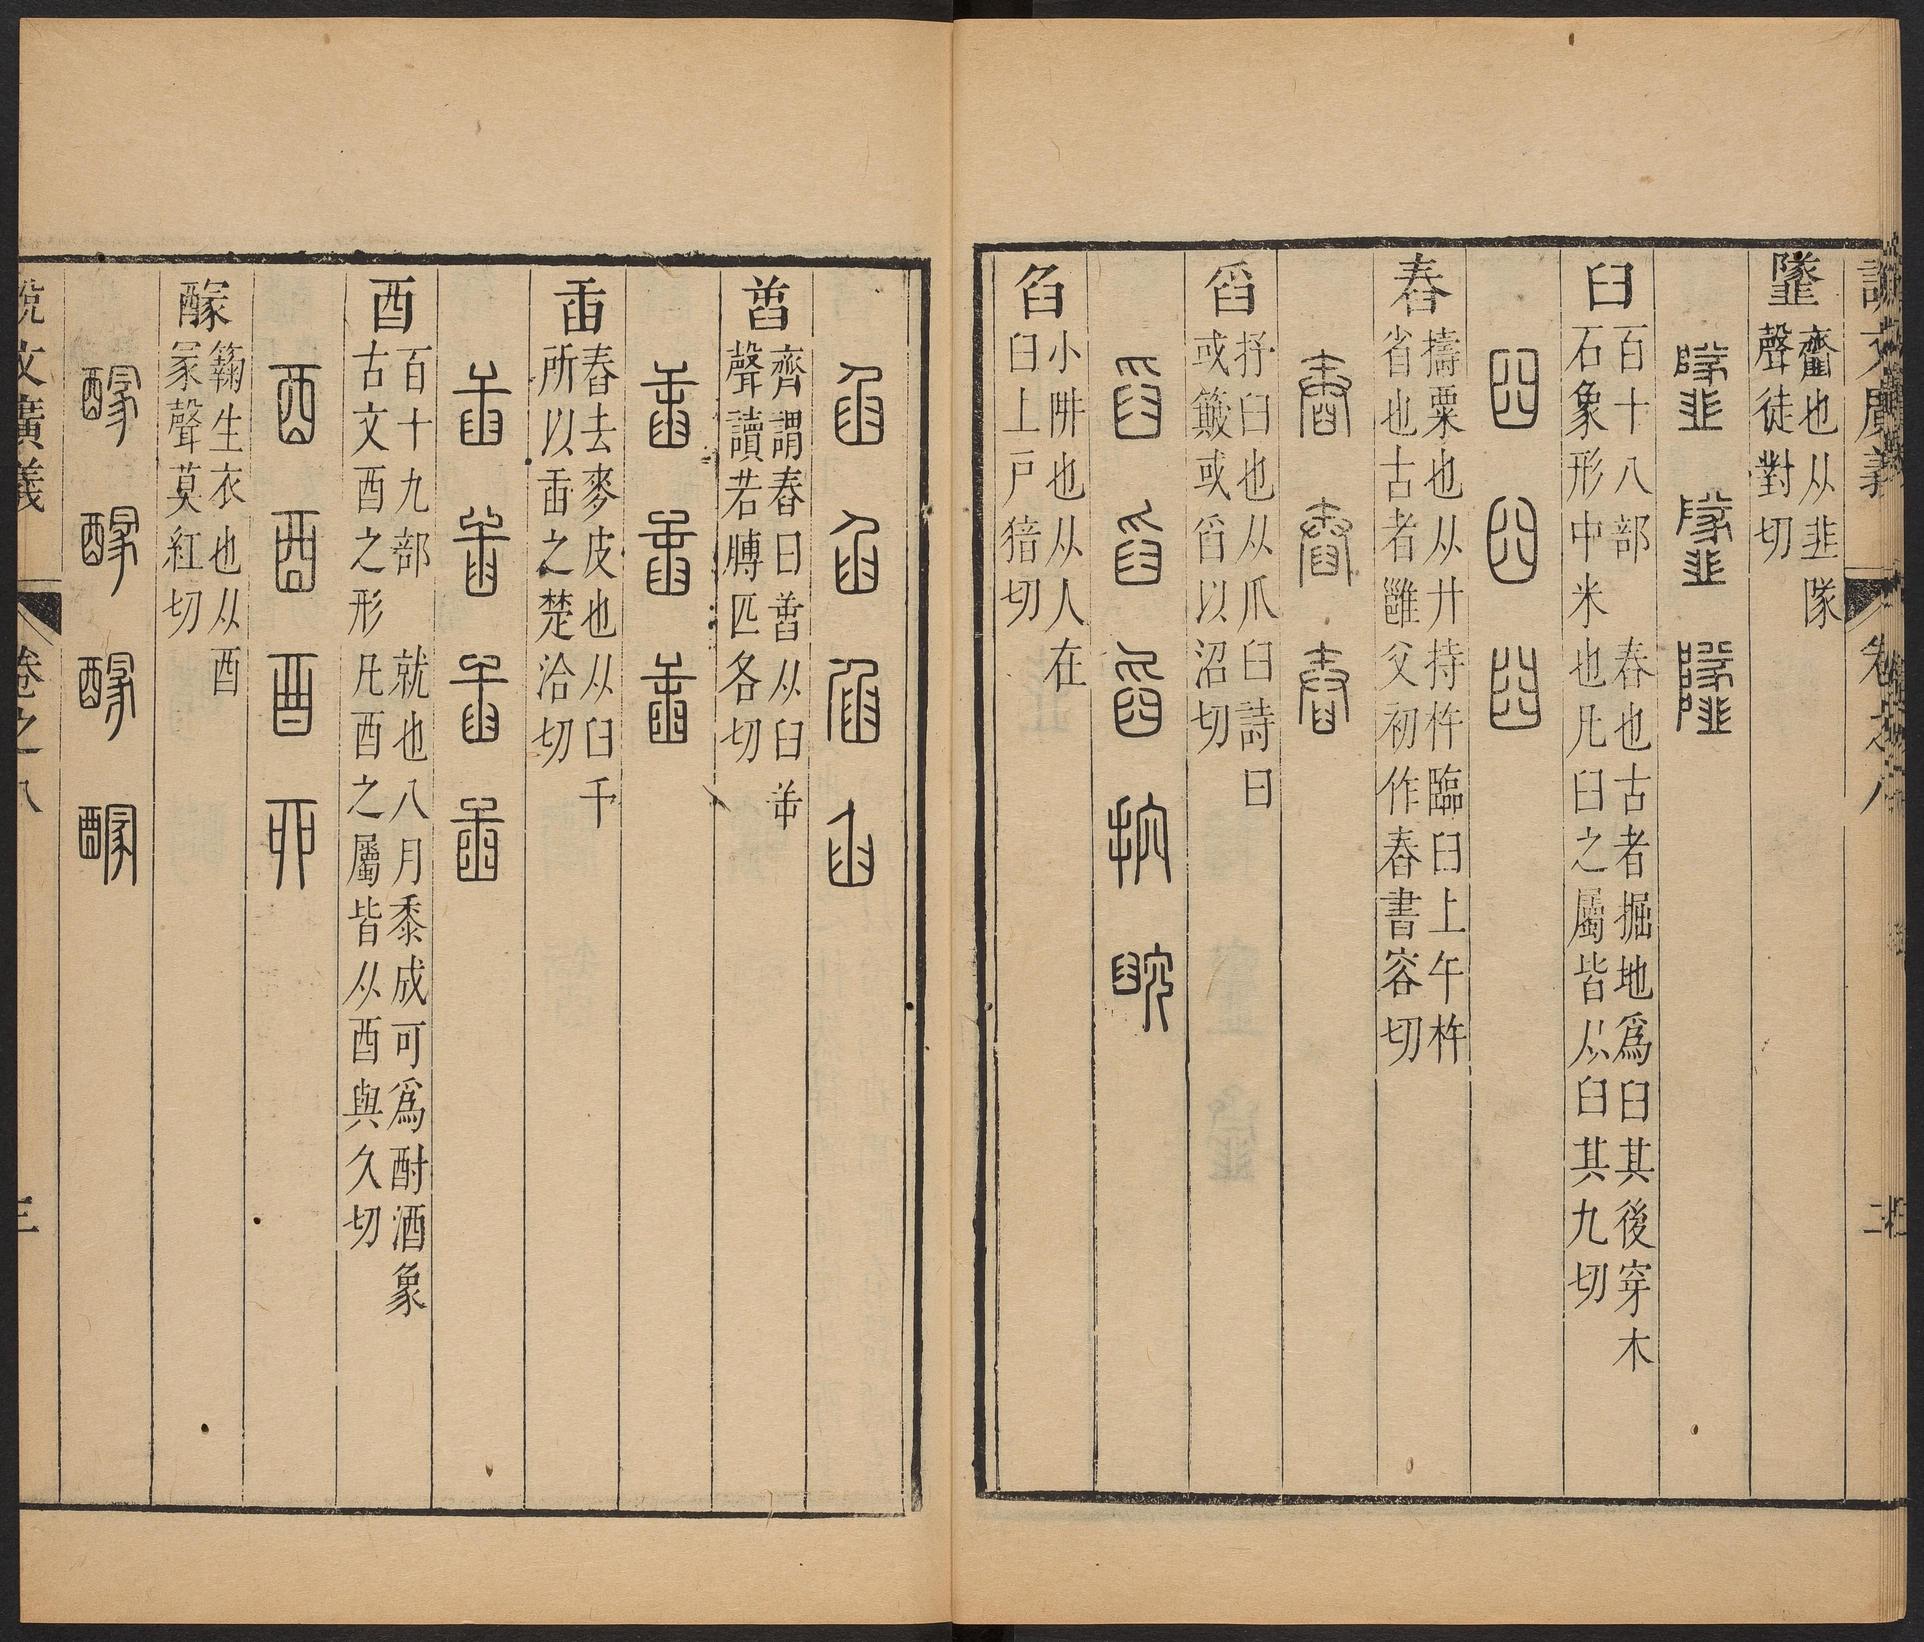 說文廣義 卷之八 二
䪢
䪥也从韭隊
聲徒對切
臼
百十八部 舂也古者掘地爲臼其後穿木
石象形中米也凡臼之屬皆从臼其九切
舂
擣粟也从廾持杵臨臼上午杵
省也古者雝父初作舂書容切
舀
抒臼也从爪臼詩曰
或簸或舀以沼切
臽
小阱也从人在
臼上戸猎切
𦥸
齊謂舂曰𦥸从臼屰
聲讀若膊匹各切
臿
舂去麥皮也从臼干
所以臿之楚洽切
酉
百十九部 就也八月黍成可爲酎酒象
古文酉之形凡酉之屬皆从酉與久切
䤓
籟生衣也从酉
冡聲莫紅切
說文廣義 卷之八 三